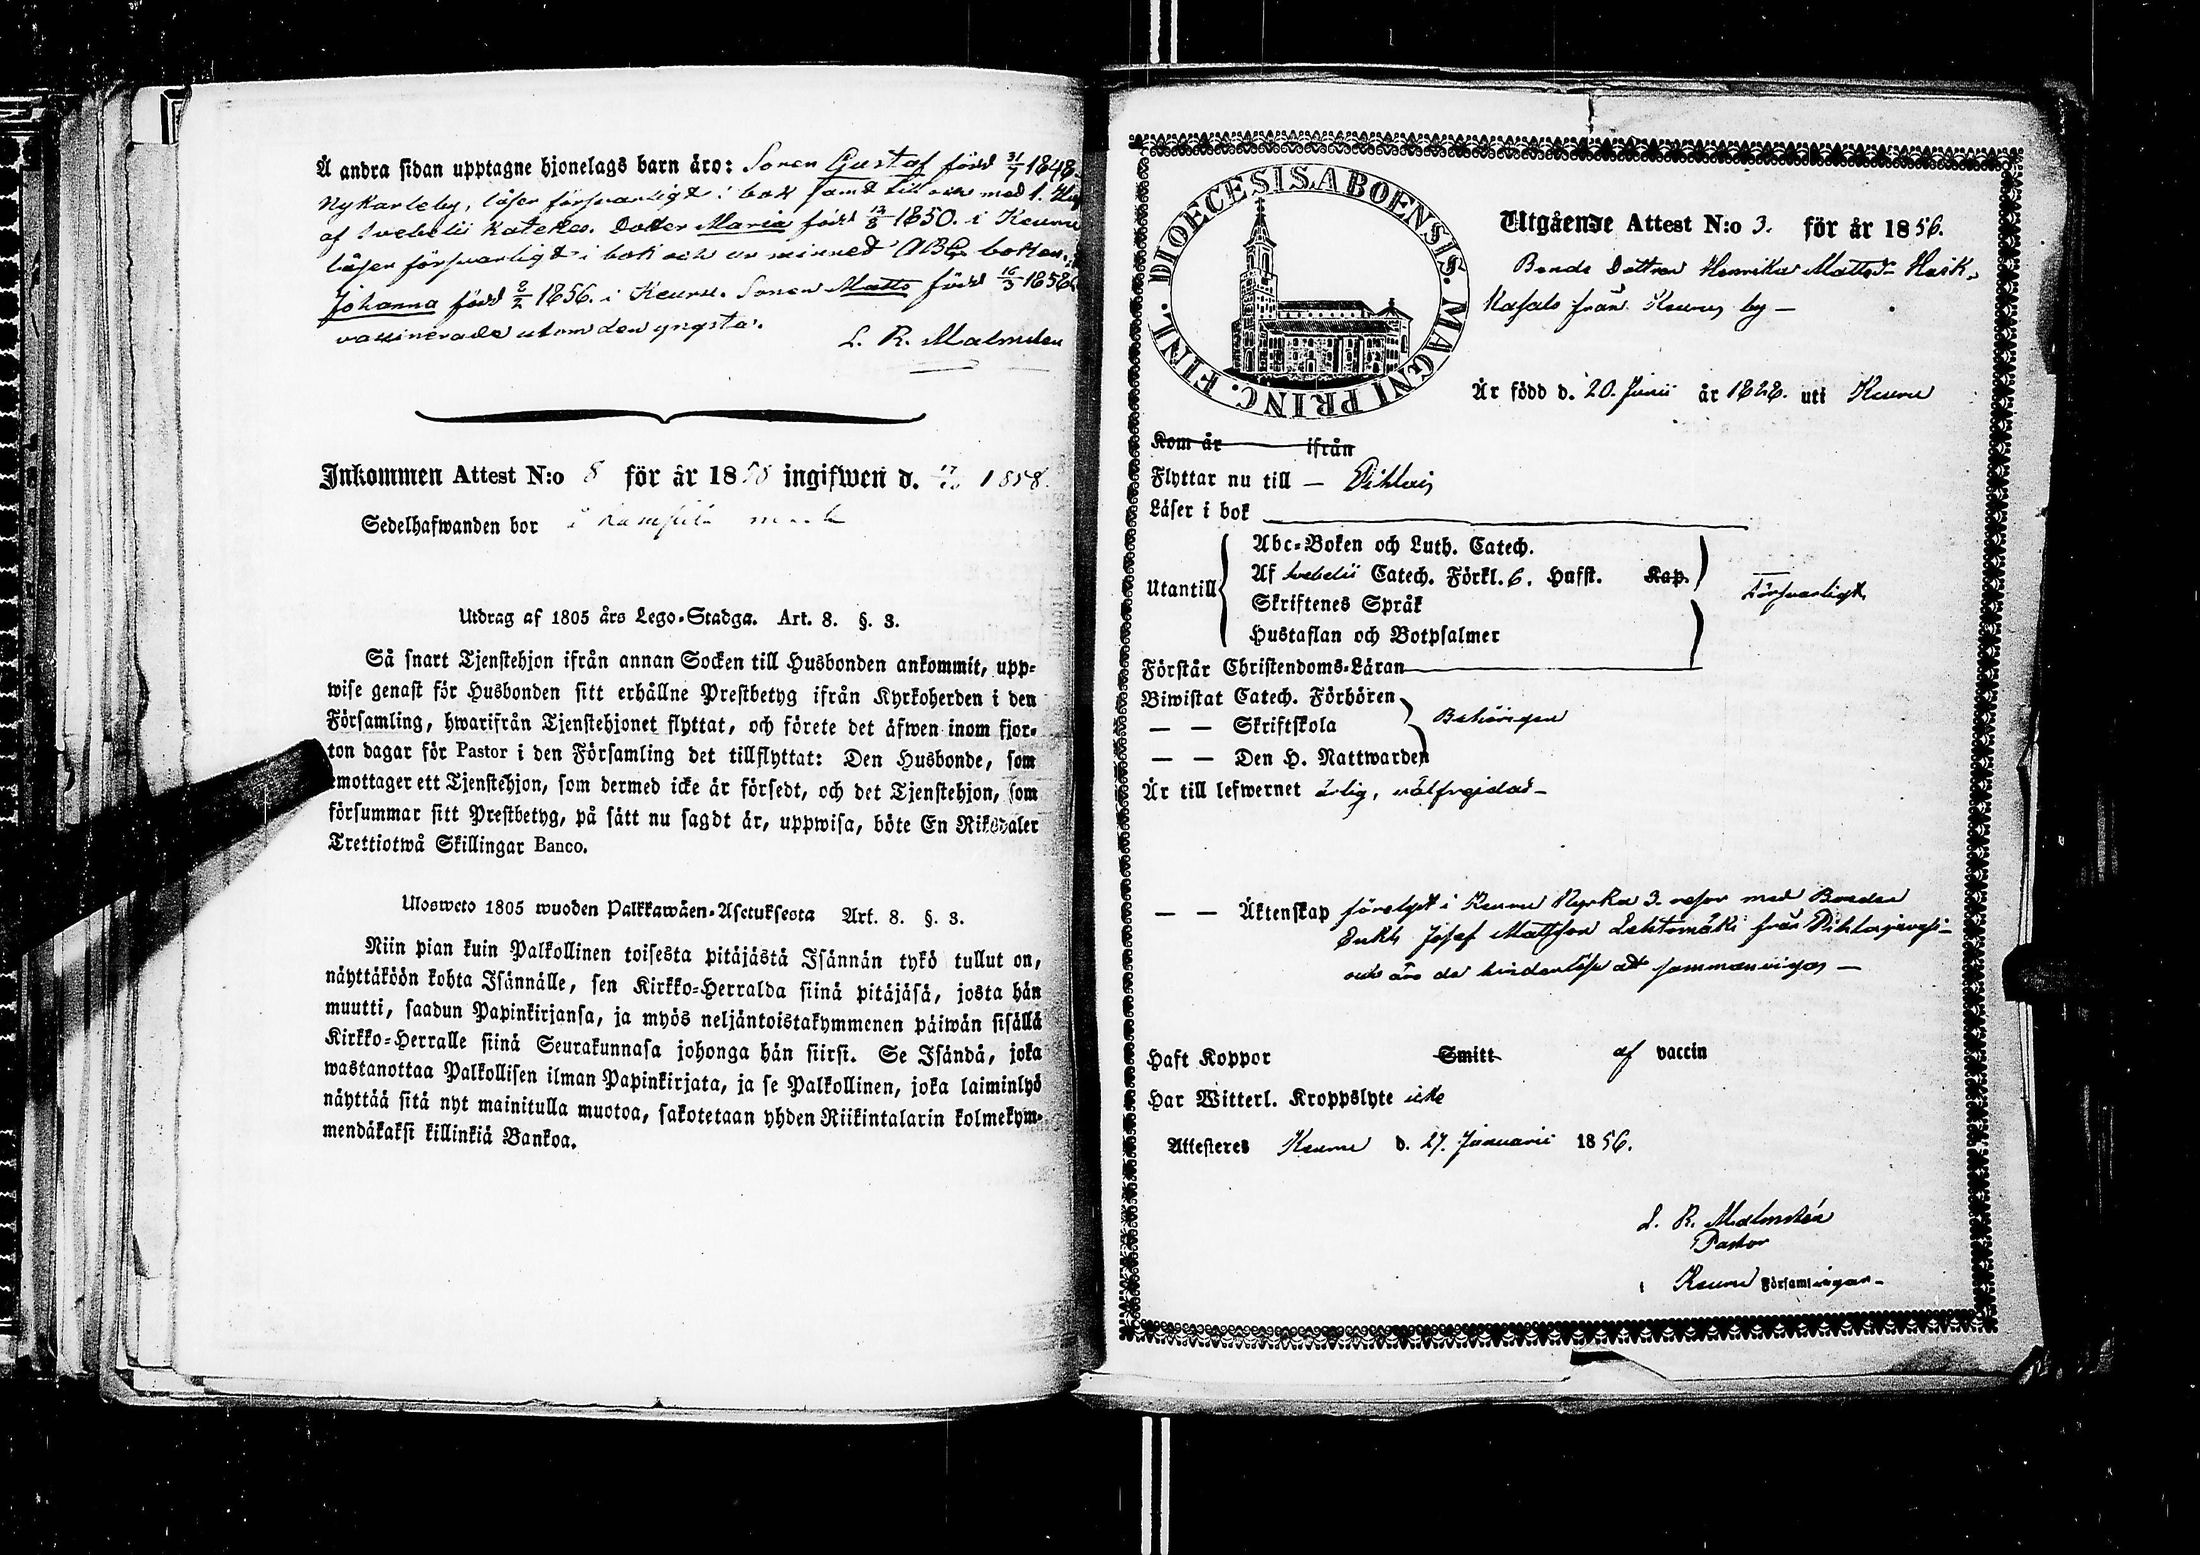 Å andra sidan upptagne hjonelags barn äro: Sonen Gustaf född 31/7 1848
Nykarleby, läser försvarligt i bok samt till och med 1. Hu
af Svebelii Kateches. Dotter Maria född 12/8 1850. i Keuru
läser försvarligt i bok och ur minnet ABC boken.
Johanna född 2/2 1856. i Keuru. Sonen Matts född 16/3 1858
vaccinerade utom den yngsta.
L. R. Malmsten
Inkommen Attest N:o 8 för år 1858 ingifwen d. 1858.
Sedelhafwanden bor
Utdrag af 1805 års Lego-Stadga. Art. 8. §. 3.
Så snart Tjenstehjon ifrån annan Socken till Husbonden ankommit, upp-
wise genast för Husbonden sitt erhållne Prestbetyg ifrån Kyrkoherden i den
Församling, hwarifrån Tjenstehjonet flyttat, och förete det äfwen inom fjor-
ton dagar för Pastor i den Församling det tillflyttat: Den Husbonde, som
emottager ett Tjenstehjon, som dermed icke är försedt, och det Tjenstehjon, som
försummar sitt Prestbetyg, på sätt nu sagdt är, uppwisa, böte En Riksdaler
Trettiotwå Skillingar Banco.
Ulosweto 1805 wuoden Palkkawäen-Asetuksesta Art. 8. §. 3.
Niin pian kuin Palkollinen toisesta pitäjästä Isännän tykö tullut on,
näyttäköön kohta Isännälle, sen Kirkko-Herralda siinä pitäjäsä, josta hän
muutti, saadun Papinkirjansa, ja myös neljäntoistakymmenen päiwän sisällä
Kirkko-Herralle siinä Seurakunnasa johonga hän siirsi. Se Isändä, joka
wastanottaa Palkollisen ilman Papinkirjata, ja se Palkollinen, joka laiminlyö
näyttää sitä nyt mainitulla muotoa, sakotetaan yhden Riikintalarin kolmekym-
mendäkaksi killinkiä Bankoa.
DIOECESIS. ABOENSIS. MAGNI PRINC. FINL.
Utgående Attest N:o 3. för år 1856.
Bonde Dottren Henrika Mattsdr Hirk-
från Keuru by —
Är född d. 20. Junii år 1828. uti Keuru
Kom år ifrån
Flyttar nu till — Pihlais
Läser i bok
Abc-Boken och Luth. Catech.
Utantill Af Svebelii Catech. Förkl. 6. Hufst. Kap. Försvarligt
Skriftenes Språk
Hustaflan och Botpsalmer
Förstår Christendoms-Läran
Biwistat Catech. Förhören
— — Skriftskola Behörigen
— — Den H. Nattwarden
Är till lefwernet ärlig, välfrejdad —
— — Äktenskap förelyst i Keuru Kyrka 3. resor med Bonden
Enkl. Josef Mattsson Lehtomäki från Pihlajavesi —
och äro de hinderlöse att sammanvigas —
Haft Koppor Smitt af vaccin
Har Witterl. Kroppslyte icke
Attesteres Keuru d. 27. Januarii 1856.
L. R. Malmstén
Pastor
i Keuru Församlingar —